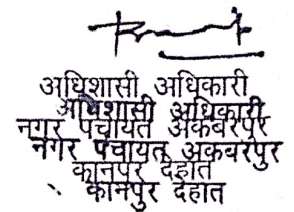 अधिशासी अधिकारी
अधिशासी अधिकारी
नगर पंचायत अकबरपुर
नगर पंचायत अकबरपुर
कानपुर देहात
कानपुर देहात